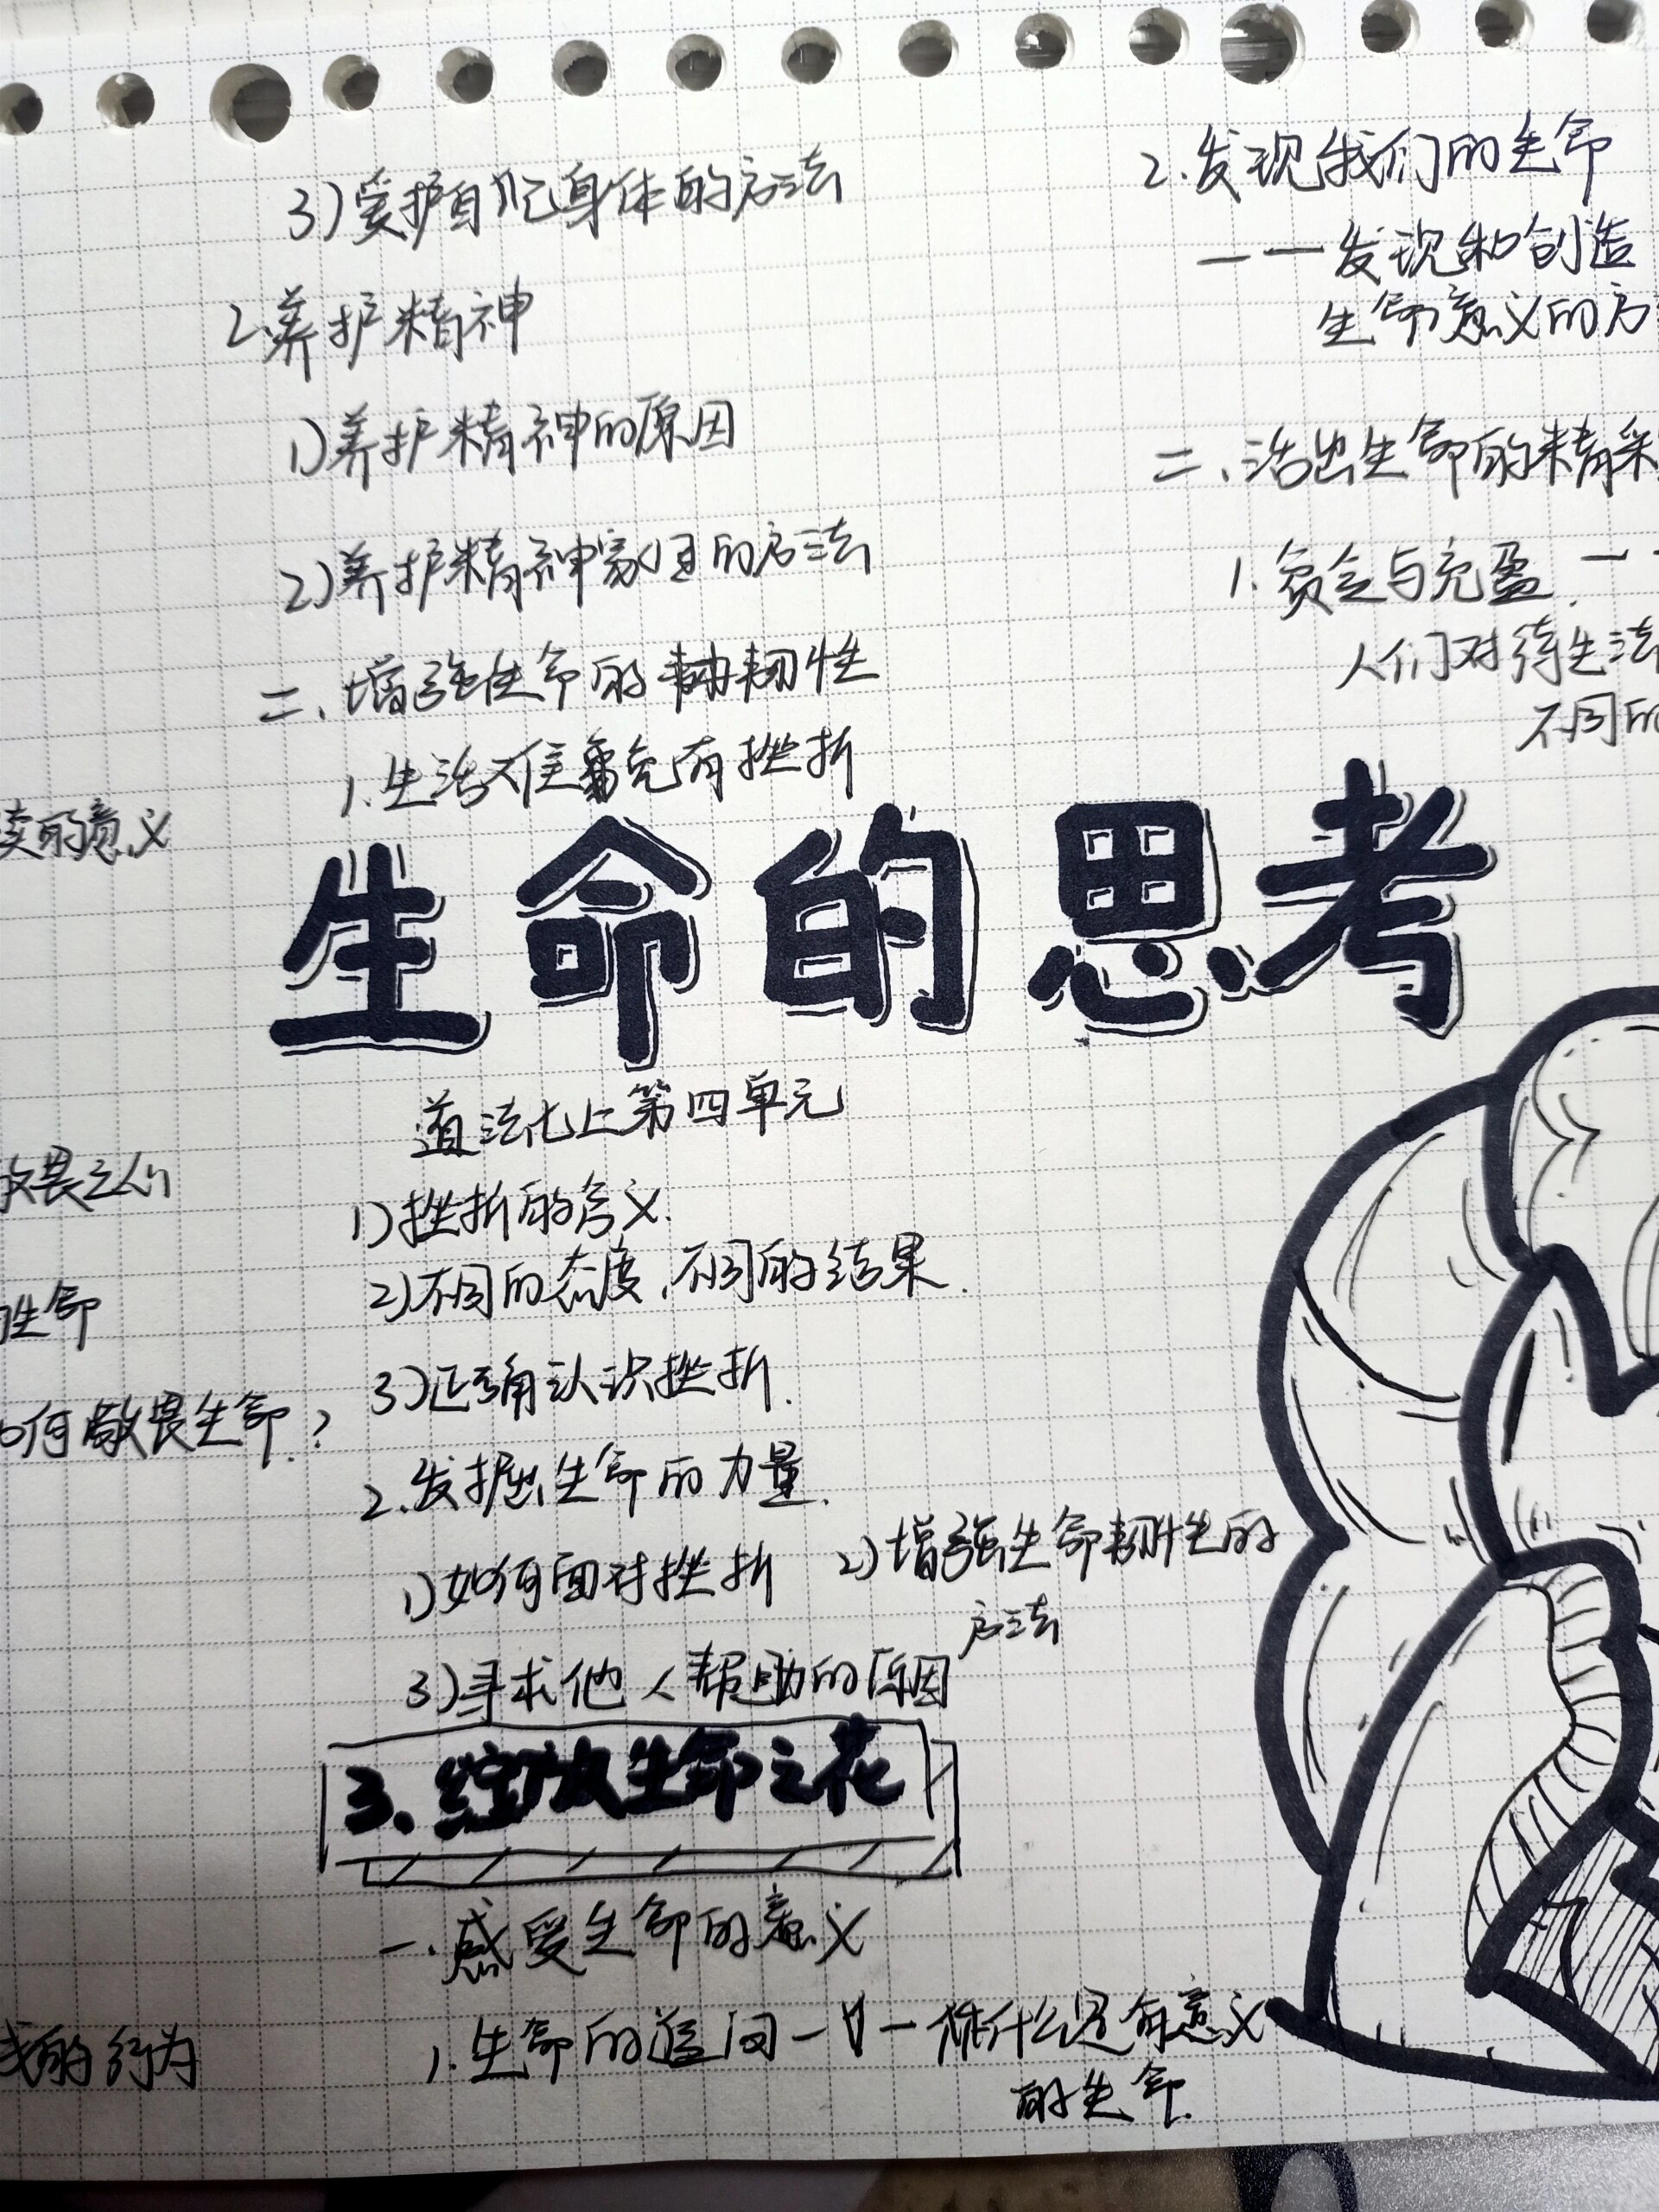 3)爱护自己身体的方法
2.养护精神
1)养护精神的原因
2)养护精神家园的方法
二、增强生命的韧性
1.生活难免有挫折
的意义
生命的思考
道法七上第四单元
1)挫折的含义.
2)不同的态度,不同的结果.
3)正确认识挫折.
2.发掘生命的力量.
1)如何面对挫折
2)增强生命韧性的
方法
3)寻求他人帮助的原因
畏之心
生命
何敬畏生命?
3、绽放生命之花
一.感受生命的意义
1.生命的追问——什么是有意义
的生命.
的行为
2.发现我们的生命
——发现和创造
生命意义的方
二、活出生命的精采
1.贫乏与充盈.——
人们对待生活
不同的